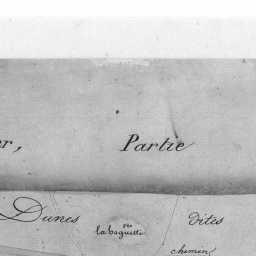 er, Partie
Dunes dites
la baguette
chemin